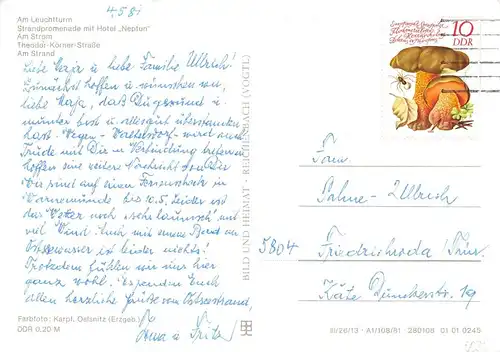 4.5.81
Am Leuchtturm
Strandpromenade mit Hotel „Neptun"
Am Strom
Theodor-Körner-Straße
Am Strand
Liebe und liebe Familie Ulbrich!
Zunächst hoffen u. wünschen wir,
liebe daß Du gesund u.
munter bist u. alles gut überstanden
hast. Wegen wird noch
Trude mit Dir in Verbindung treten wir
hoffen eine weitere Nachricht von Dir
Wir sind auf einen Ferienscheck in
Warnemünde bis 10.5. Leider ist
das Wetter noch sehr launisch und
viel Wind. Auch mit einem Bad im
Ostseewasser ist leider nichts!
Trotzdem fühlen wir uns hier
ganz wohl. Es Euch
allen herzliche Grüße vom Ostseestrand,
u.
Farbfoto: Karpf, Oelsnitz (Erzgeb.)
DDR 0,20 M
BILD UND HEIMAT · REICHENBACH (VOGTL)
10
DDR
Fam.
5804 Friedrichroda / Thür.
Käte Dunckerstr. 19
III/26/13 · A1/108/81 · 280108 01 01 0245